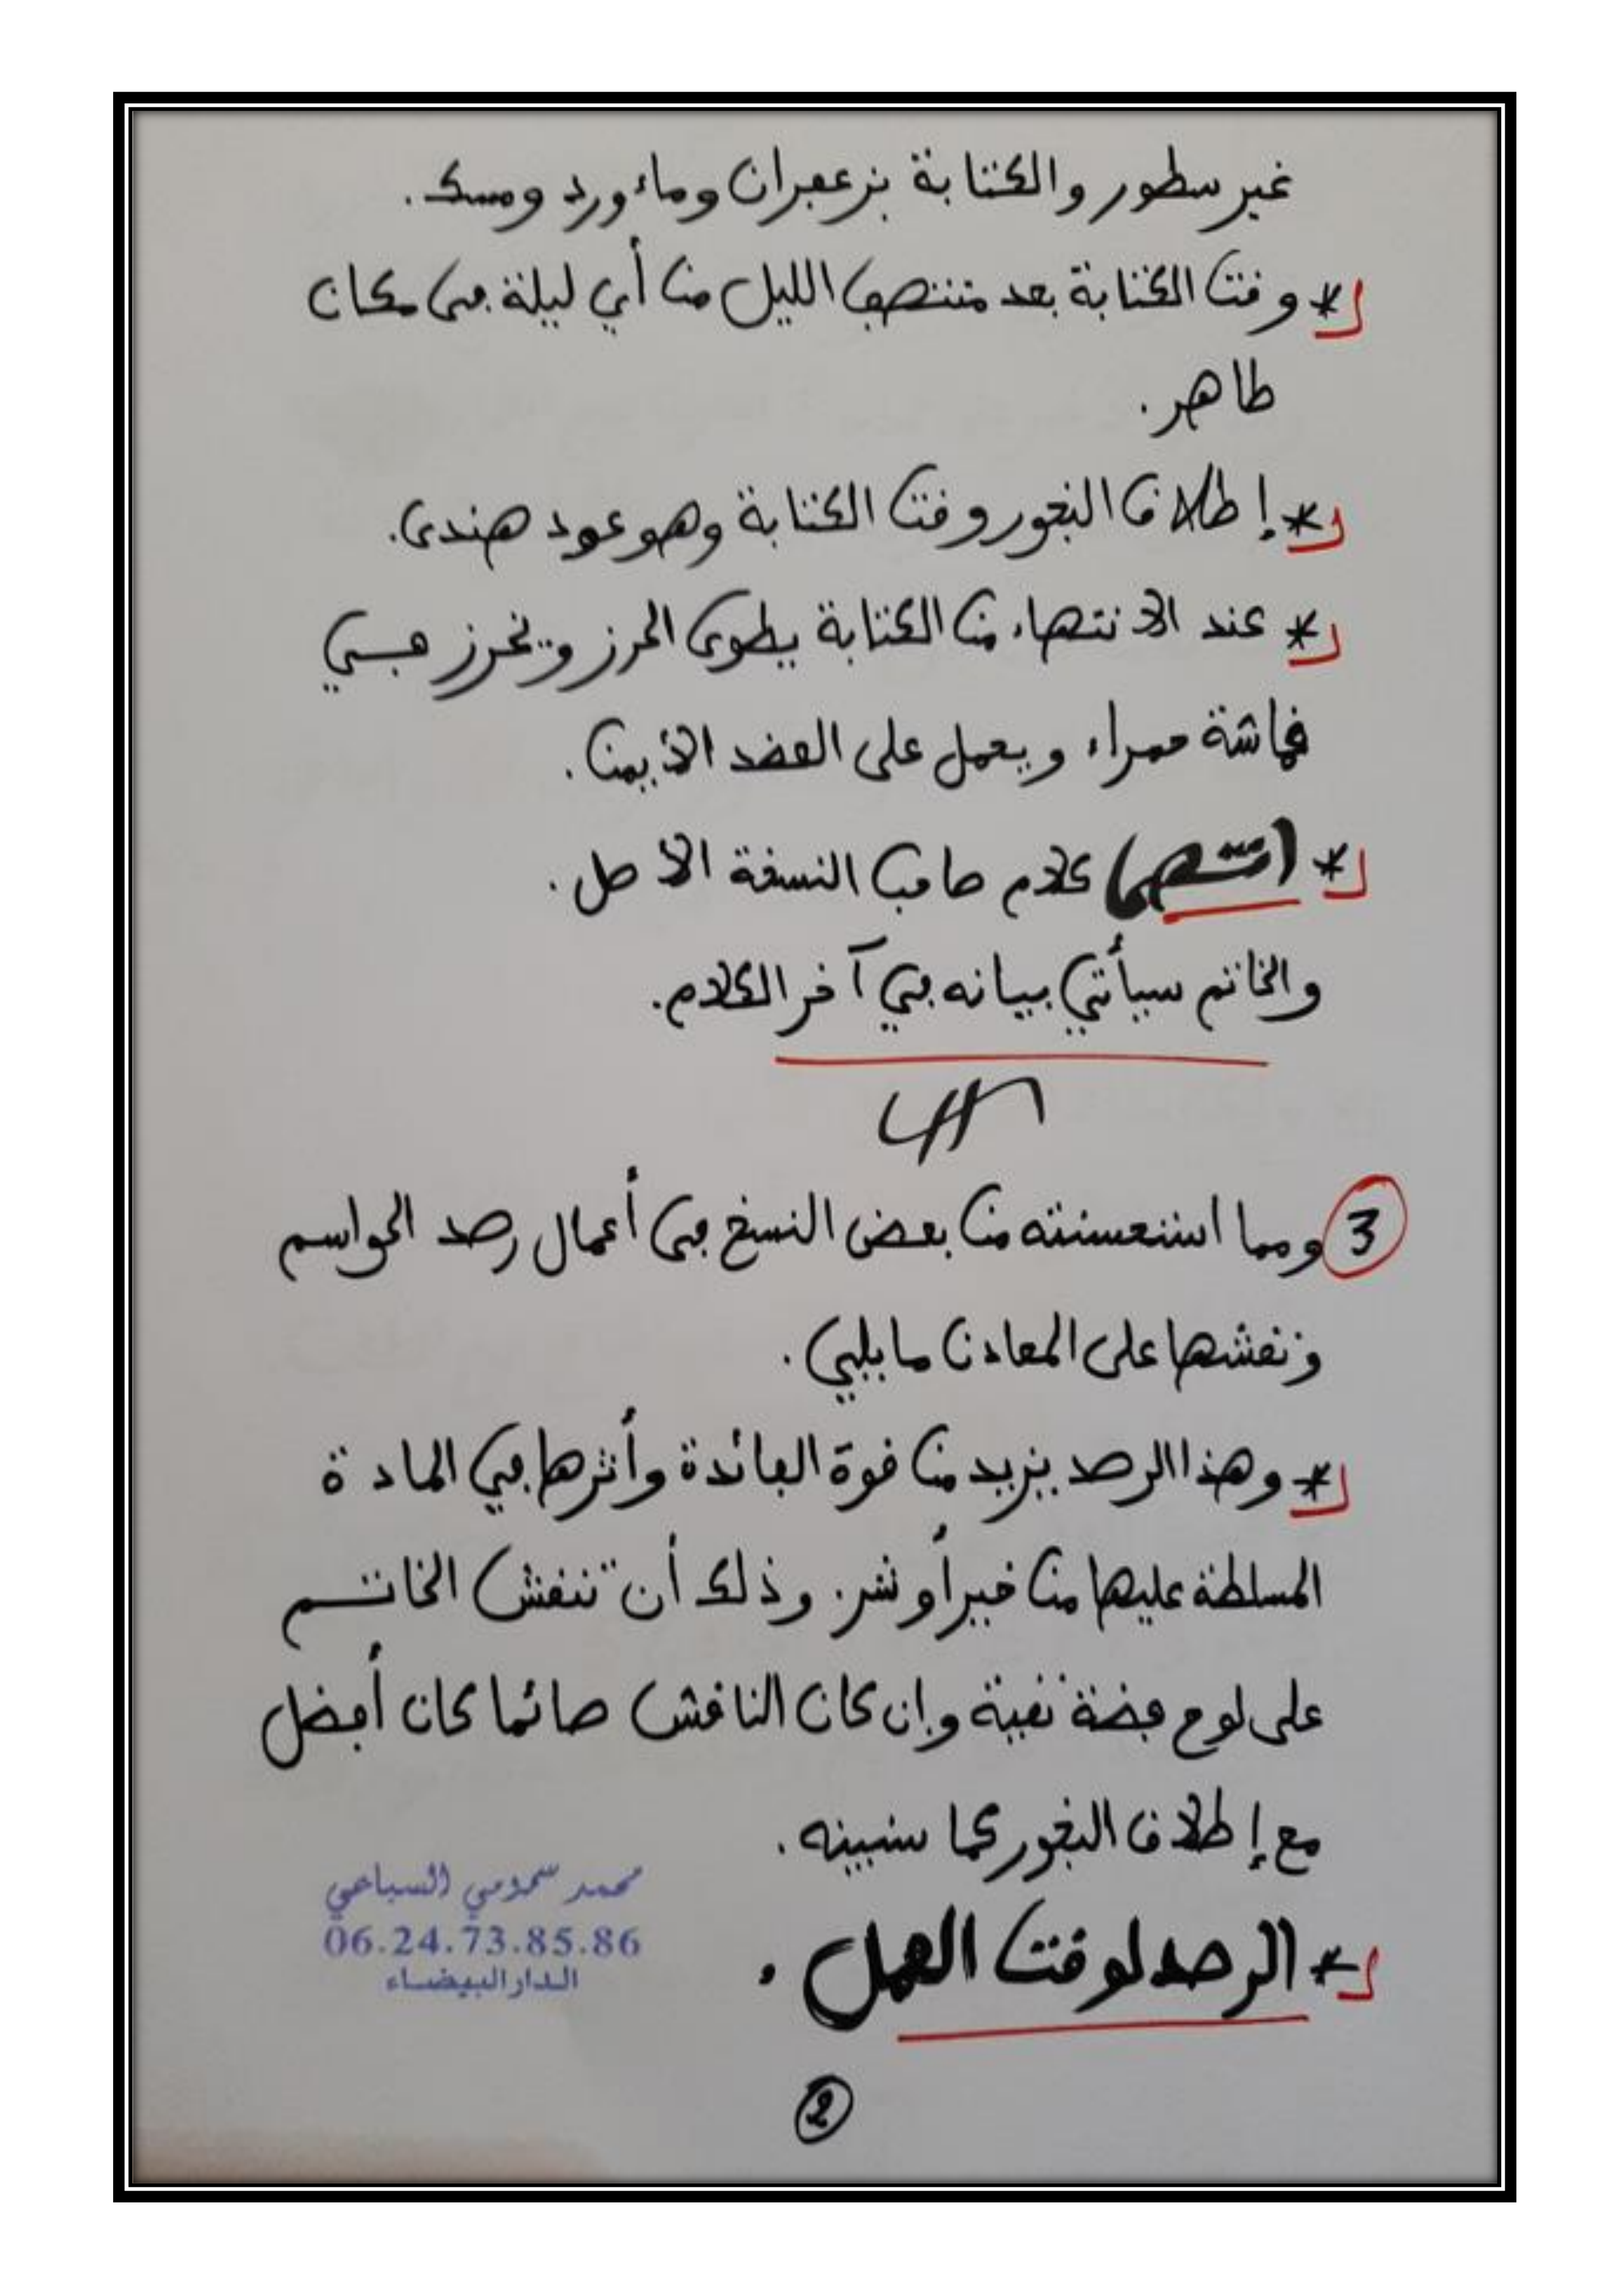 غير سطور والكتابة بزعفران وماء ورد ومسك.
* وقت الكتابة بعد منتصف الليل من أي ليلة في مكان
طاهر.
* إطلاق البخور وقت الكتابة وهو عود هندي.
* عند الانتهاء من الكتابة يطوى الحرز ويخرز في
قماشة حمراء ويعمل على العضد الأيمن.
* انتهى كلام صاحب النسخة الأصل.
والخاتم سيأتي بيانه في آخر الكلام.
3 ومما استحسنته من بعض النسخ في أعمال رصد الحواسم
ونقشها على المعادن ما يلي.
* وهذا الرصد يزيد من قوة الفائدة وأثرها في المادة
المسلطة عليها من خير أو شر. وذلك أن تنقش الخاتم
على لوح فضة نقية وإن كان الناقش صائما كان أفضل
مع إطلاق البخور كما سنبينه.
محمد سحمومي السباعي
06.24.73.85.86
الدار البيضاء
* الرصد لوقت العمل.
2